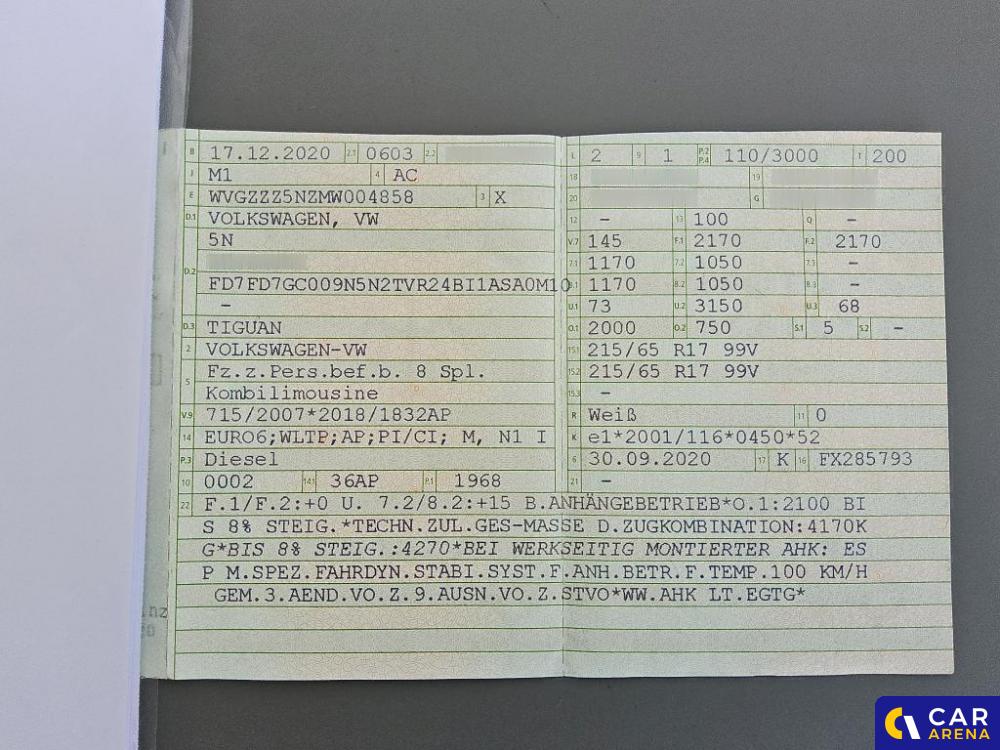 B 17.12.2020 2.1 0603 2.2
J M1 4 AC
E WVGZZZ5NZMW004858 3 X
D.1 VOLKSWAGEN, VW
5N
D.2
FD7FD7GC009N5N2TVR24BI1ASA0M10
–
D.3 TIGUAN
2 VOLKSWAGEN-VW
5 Fz.z.Pers.bef.b. 8 Spl.
Kombilimousine
V.9 715/2007*2018/1832AP
14 EURO6;WLTP;AP;PI/CI; M, N1 I
P.3 Diesel
10 0002 14.1 36AP P.1 1968
L 2 9 1 P.2 P.4 110/3000 T 200
18 19
20 G
12 – 13 100 Q –
V.7 145 F.1 2170 F.2 2170
7.1 1170 7.2 1050 7.3 –
8.1 1170 8.2 1050 8.3 –
U.1 73 U.2 3150 U.3 68
O.1 2000 O.2 750 S.1 5 S.2 –
15.1 215/65 R17 99V
15.2 215/65 R17 99V
15.3 –
R Weiß 11 0
K e1*2001/116*0450*52
6 30.09.2020 17 K 16 FX285793
21 –
22 F.1/F.2:+0 U. 7.2/8.2:+15 B.ANHÄNGEBETRIEB*O.1:2100 BI
S 8% STEIG.*TECHN.ZUL.GES-MASSE D.ZUGKOMBINATION:4170K
G*BIS 8% STEIG.:4270*BEI WERKSEITIG MONTIERTER AHK: ES
P M.SPEZ.FAHRDYN.STABI.SYST.F.ANH.BETR.F.TEMP.100 KM/H
GEM.3.AEND.VO.Z.9.AUSN.VO.Z.STVO*WW.AHK LT.EGTG*
CAR
ARENA